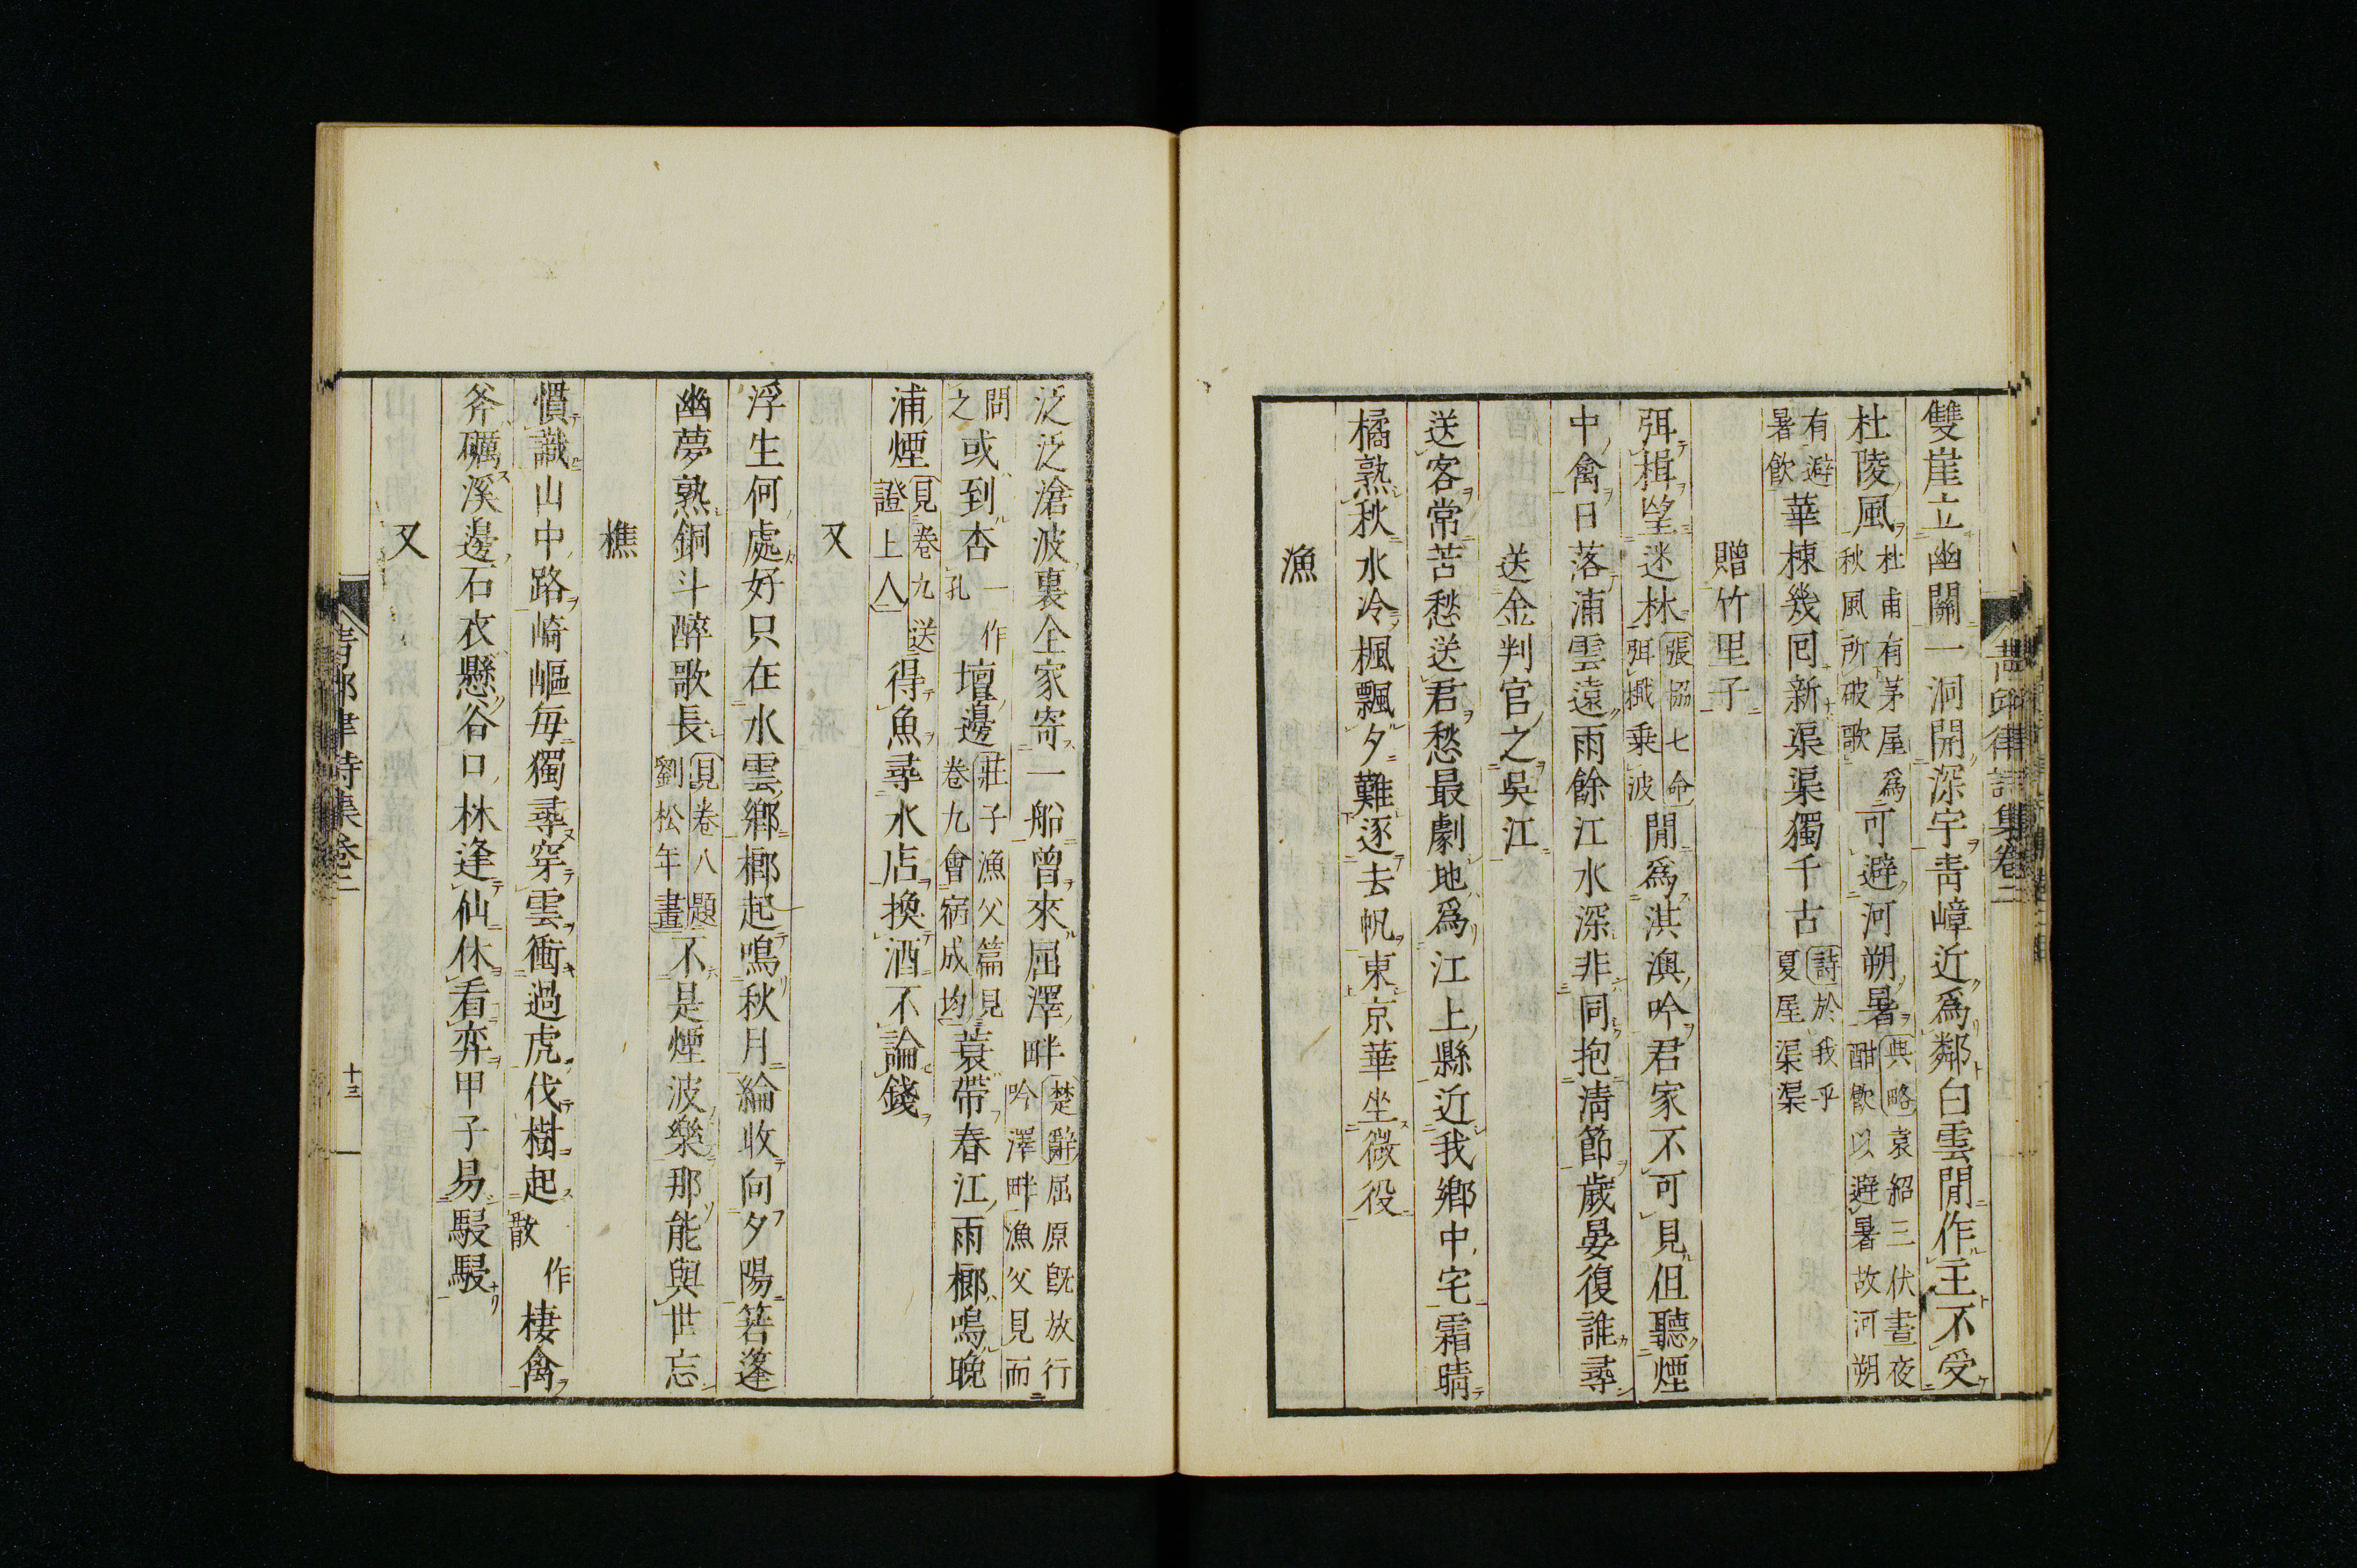 雙崖立幽關一洞開深宇青嶂近爲鄰白雲閒作主不受
杜陵風杜甫有茅屋爲秋風所破歌可避河朔暑典略袁紹三伏晝夜酣飲以避暑故河朔
有避暑飲華棟幾回新渠渠獨千古詩於我乎夏屋渠渠
贈竹里子
弭楫望迷林張協七命弭檝乗波閒爲淇澳吟君家不可見但聽煙
中禽日落浦雲遠雨餘江水深非同抱淸節歲晏復誰尋
送金判官之吳江
送客常苦愁送君愁最劇地爲江上縣近我鄕中宅霜晴
橘熟秋水冷楓飄夕難逐去帆東京華坐微役
漁
泛泛滄波裏全家寄一船曾來屈澤畔楚辭屈原旣放行吟澤畔漁父見而
問之或到杏一作孔壇邊莊子漁父篇見卷九會宿成均蓑帶春江雨榔鳴晚
浦煙見卷九送證上人得魚尋水店換酒不論錢
又
浮生何處好只在水雲鄕榔起鳴秋月綸收向夕陽篛蓬
幽夢熟銅斗醉歌長見卷八題劉松年畫不是煙波樂那能與世忘
樵
慣識山中路崎嶇每獨尋穿雲衝過虎伐樹起一作散棲禽
斧礪溪邊石衣懸谷口林逢仙休看弈甲子易駸駸
又
靑邱律詩集卷二
十三